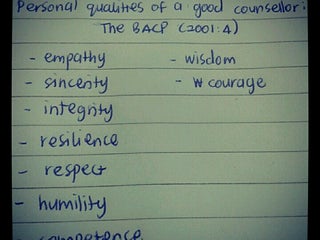 Personal qualities of a good counsellor:
The BACP (2001:4)
- empathy - wisdom
- sincerity - courage
- integrity
- resilience
- respect
- humility
- competence